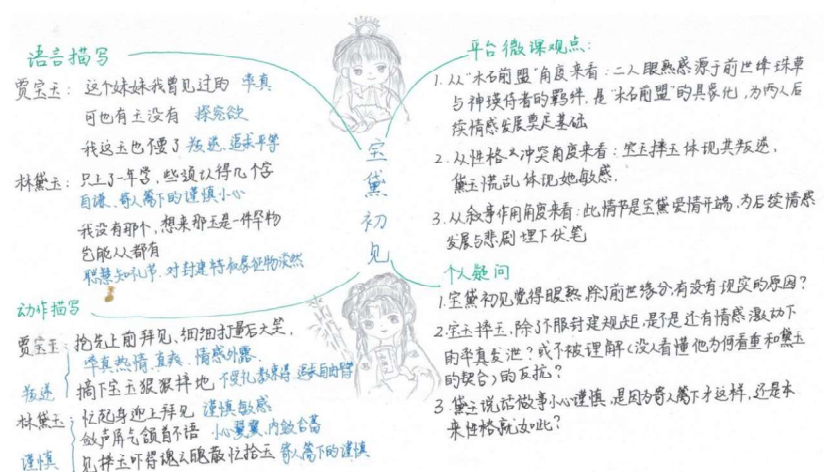 语言描写
贾宝玉：这个妹妹我曾见过的 率真
可也有玉没有 探究欲
我这玉也不要了 叛逆、追求平等
林黛玉：只上了一年学，些须认得几个字
自谦、寄人篱下的谨慎小心
我没有那个，想来那玉是一件罕物
岂能人人都有
聪慧知礼节、对封建特权象征物淡然
动作描写
贾宝玉：抢先上前拜见、细细打量后大笑、
率真热情、直我、情感外露
叛逆 摘下宝玉狠狠摔地 不受礼教束缚 追求自由个性
林黛玉：忙起身迎上拜见 谨慎敏感
敛声屏气颔首不语 小心翼翼、内敛含蓄
谨慎 见摔玉吓得魂飞魄散忙拾玉 寄人篱下的谨慎
宝黛初见
平台微课观点：
1. 从“木石前盟”角度来看：二人眼熟感源于前世绛珠草
与神瑛侍者的羁绊，是“木石前盟”的具象化，为两人后
续情感发展奠定基础
2. 从性格冲突角度来看：宝玉摔玉体现其叛逆，
黛玉慌乱体现她敏感。
3. 从叙事作用角度来看：此情节是宝黛爱情开端，为后续情感
发展与悲剧埋下伏笔
个人疑问
1. 宝黛初见觉得眼熟，除了前世缘分，有没有现实的原因？
2. 宝玉摔玉，除了不服封建规矩，是不是还有情感激动下
的率真发泄？或不被理解（没人看懂他为何看重和黛玉
的契合）的反抗？
3. 黛玉说话做事小心谨慎，是因为寄人篱下才这样，还是本
来性格就如此？